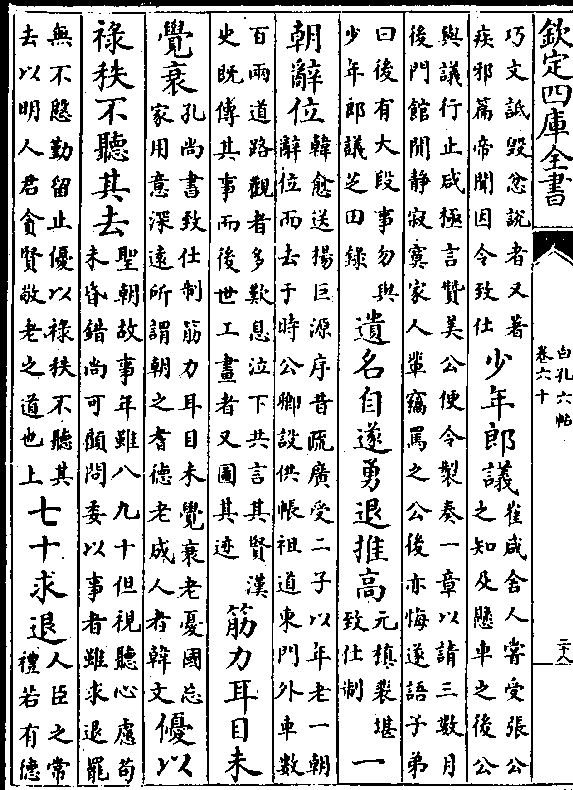 欽定四庫全書
白孔六帖
卷六十
二十八
巧文詆毀忿說者又著
疾邪篇帝聞因令致仕
少年郎議
崔咸舍人嘗受張公
之知及懸車之後公
與議行止咸極言贊美公便令製奏一章以請三數月
後門館閒静寂寞家人輩竊罵之公後亦悔遂語子弟
曰後有大段事勿與
少年郎議芝田録
遺名自遂勇退推高
元稹裴堪
致仕制
一
朝辭位
韓愈送楊巨源序昔疏廣受二子以年老一朝
辭位而去于時公卿設供帳祖道東門外車數
百兩道路觀者多歎息泣下共言其賢漢
史既傳其事而後世工畫者又圖其迹
筋力耳目未
覺衰
孔尚書致仕制筋力耳目未覺衰老憂國忘
家用意深遠所謂朝之耆德老成人者韓文
優以
祿秩不聽其去
聖朝故事年雖八九十但視聽心慮苟
未昏錯尚可顧問委以事者雖求退罷
無不慇勤留止優以祿秩不聽其
去以明人君貪賢敬老之道也上
七十求退
人臣之常
禮若有德